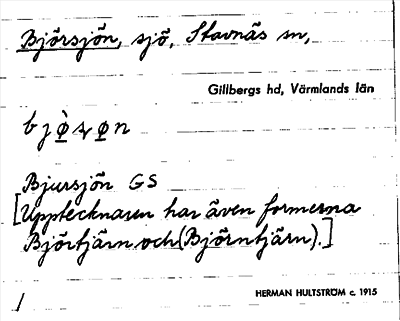 Björsjön, sjö, Stavnäs sn,
Gillbergs hd, Värmlands län
bjø̀sₒøn
Bjursjön GS
[Upptecknaren har även formerna
Björtjärn och (Björntjärn).]
HERMAN HULTSTRÖM c. 1915
/